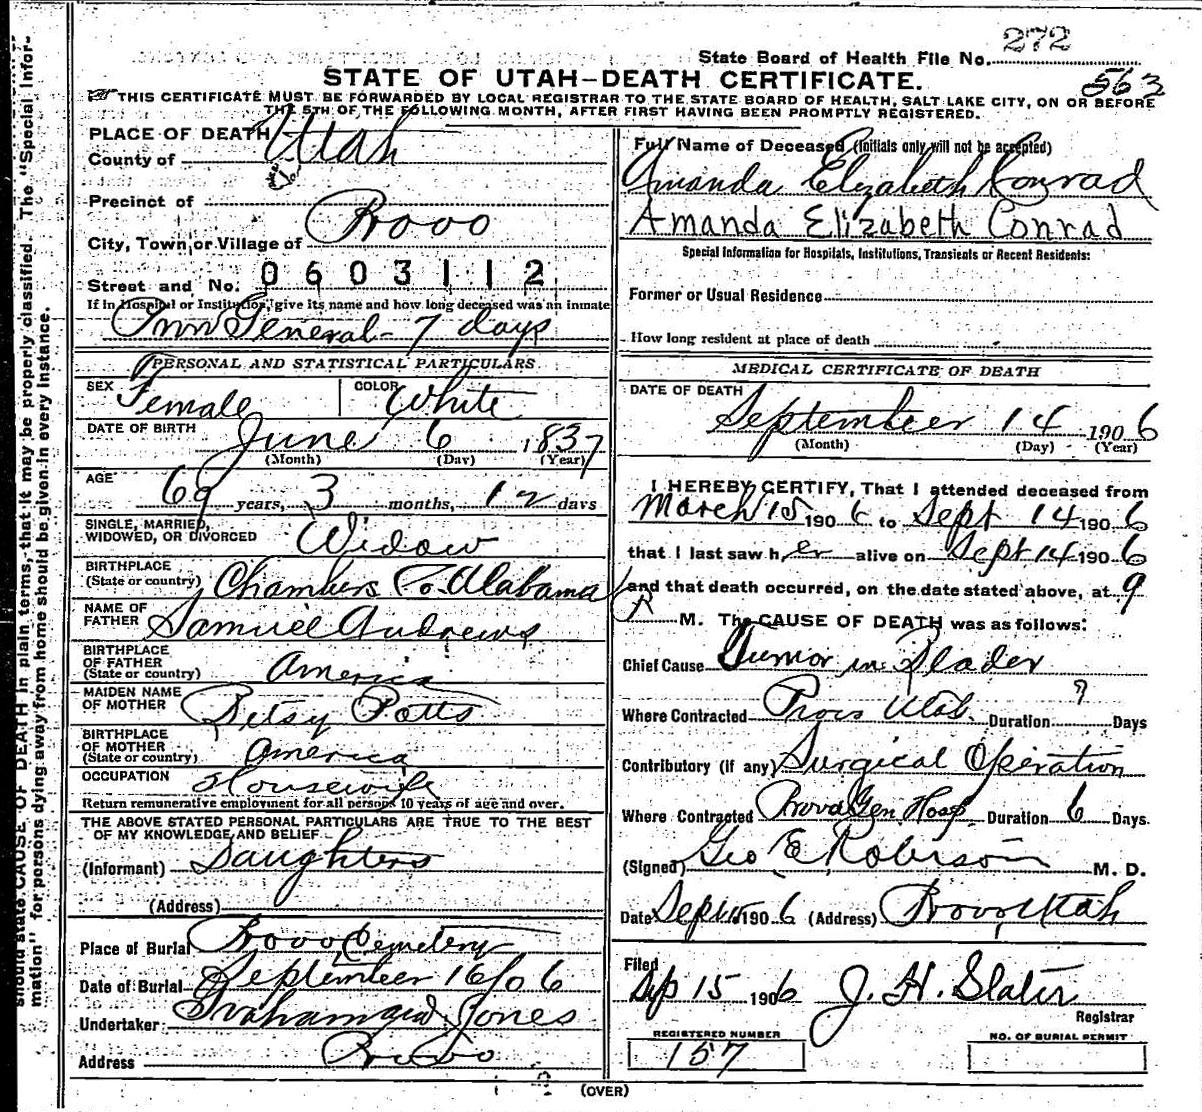 272
State Board of Health File No.
STATE OF UTAH—DEATH CERTIFICATE.
563
THIS CERTIFICATE MUST BE FORWARDED BY LOCAL REGISTRAR TO THE STATE BOARD OF HEALTH, SALT LAKE CITY, ON OR BEFORE
THE 5TH OF THE FOLLOWING MONTH, AFTER FIRST HAVING BEEN PROMPTLY REGISTERED.
should state CAUSE OF DEATH in plain terms, that it may be properly classified. The "Special Infor-
mation" for persons dying away from home should be given in every instance.
PLACE OF DEATH
County of Utah
Precinct of
City, Town, or Village of Provo
Street and No. 0603112
If in Hospital or Institution, give its name and how long deceased was an inmate
General - 7 days
PERSONAL AND STATISTICAL PARTICULARS
SEX Female COLOR White
DATE OF BIRTH June 6 1837
(Month) (Day) (Year)
AGE 69 years, 3 months, 12 days
SINGLE, MARRIED,
WIDOWED, OR DIVORCED Widow
BIRTHPLACE
(State or country) Chambers Co. Alabama
NAME OF
FATHER Samuel Andrews
BIRTHPLACE
OF FATHER
(State or country) America
MAIDEN NAME
OF MOTHER Betsy Potts
BIRTHPLACE
OF MOTHER
(State or country) America
OCCUPATION Housewife
Return remunerative employment for all persons 10 years of age and over.
THE ABOVE STATED PERSONAL PARTICULARS ARE TRUE TO THE BEST
OF MY KNOWLEDGE AND BELIEF
(Informant) Daughters
(Address)
Place of Burial Provo Cemetery
Date of Burial September 16/06
Undertaker Graham and Jones
Address Provo
Full Name of Deceased (Initials only will not be accepted)
Amanda Elizabeth Conrad
Amanda Elizabeth Conrad
Special Information for Hospitals, Institutions, Transients or Recent Residents:
Former or Usual Residence
How long resident at place of death
MEDICAL CERTIFICATE OF DEATH
DATE OF DEATH
September 14 1906
(Month) (Day) (Year)
I HEREBY CERTIFY, That I attended deceased from
March 15 1906 to Sept 14 1906
that I last saw her alive on Sept 14 1906
and that death occurred, on the date stated above, at 9
A M. The CAUSE OF DEATH was as follows:
Chief Cause Tumor in Blader
Where Contracted Provo Utah. Duration ? Days
Contributory (if any) Surgical Operation
Where Contracted Provo Gen Hosp. Duration 6 Days.
(Signed) Geo E Robison M. D.
Date Sept 15 1906 (Address) Provo, Utah
Filed
Sep 15 1906 J. H. Slater
Registrar
REGISTERED NUMBER
157
NO. OF BURIAL PERMIT
(OVER)